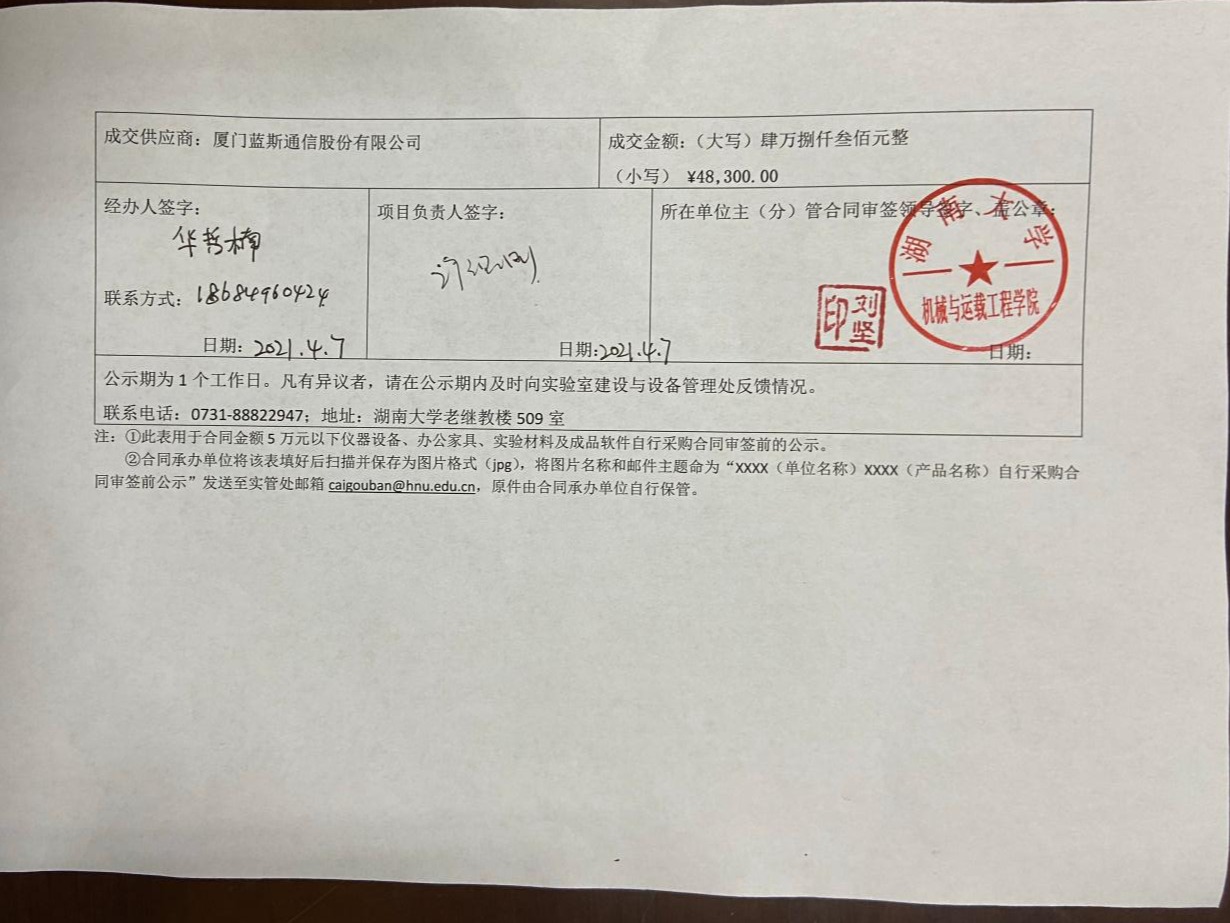 成交供应商：厦门蓝斯通信股份有限公司
成交金额：（大写）肆万捌仟叁佰元整
（小写） ¥48,300.00
经办人签字：
华哲楠
联系方式：18684960424
日期：2021.4.7
项目负责人签字：
日期:2021.4.7
所在单位主（分）管合同审签领导签字、盖公章：
刘坚印
湖南大学
机械与运载工程学院
日期：
公示期为 1 个工作日。凡有异议者，请在公示期内及时向实验室建设与设备管理处反馈情况。
联系电话：0731-88822947；地址：湖南大学老继教楼 509 室
注：①此表用于合同金额 5 万元以下仪器设备、办公家具、实验材料及成品软件自行采购合同审签前的公示。
②合同承办单位将该表填好后扫描并保存为图片格式（jpg），将图片名称和邮件主题命为“XXXX（单位名称）XXXX（产品名称）自行采购合
同审签前公示”发送至实管处邮箱 caigouban@hnu.edu.cn，原件由合同承办单位自行保管。